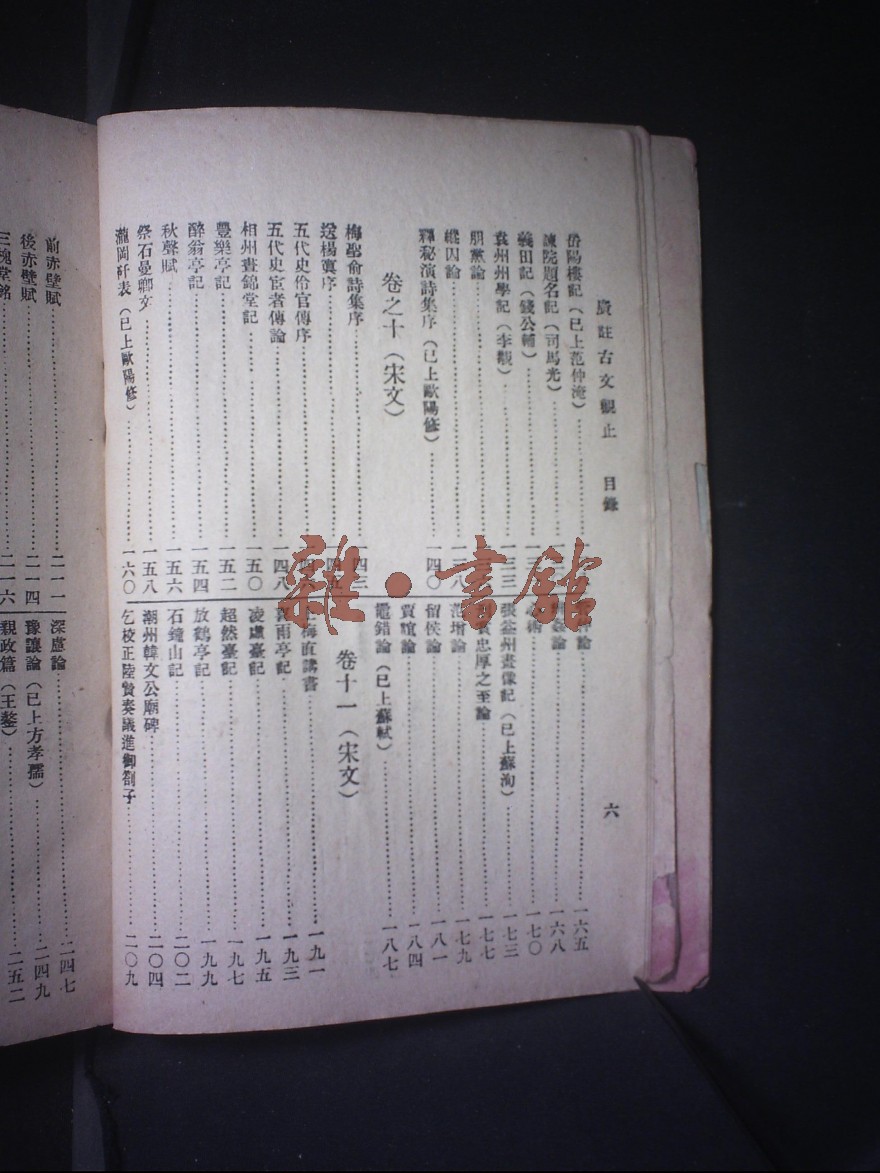 廣註古文觀止　目錄　六
岳陽樓記（已上范仲淹）
諫院題名記（司馬光）
義田記（錢公輔）
袁州州學記（李覯）……一三三
朋黨論
縱囚論……一三八
釋秘演詩集序（已上歐陽修）……一四〇
卷之十（宋文）
梅聖俞詩集序……一四三
送楊寘序
五代史伶官傳序
五代史宦者傳論……一四八
相州晝錦堂記……一五〇
豐樂亭記……一五二
醉翁亭記……一五四
秋聲賦……一五六
祭石曼卿文……一五八
瀧岡阡表（已上歐陽修）……一六〇
論……一六五
論……一六八
術……一七〇
張益州畫像記（已上蘇洵）……一七三
忠厚之至論……一七七
范增論……一七九
留侯論……一八一
賈誼論……一八四
鼂錯論（已上蘇軾）……一八七
卷十一（宋文）
梅直講書……一九一
雨亭記……一九三
凌虛臺記……一九五
超然臺記……一九七
放鶴亭記……一九九
石鐘山記……二〇二
潮州韓文公廟碑……二〇四
乞校正陸贄奏議進御劄子……二〇九
前赤壁賦……二一一
後赤壁賦……二一四
三槐堂銘……二一六
深慮論……二四七
豫讓論（已上方孝孺）……二四九
親政篇（王鏊）……二五二
雜·書館